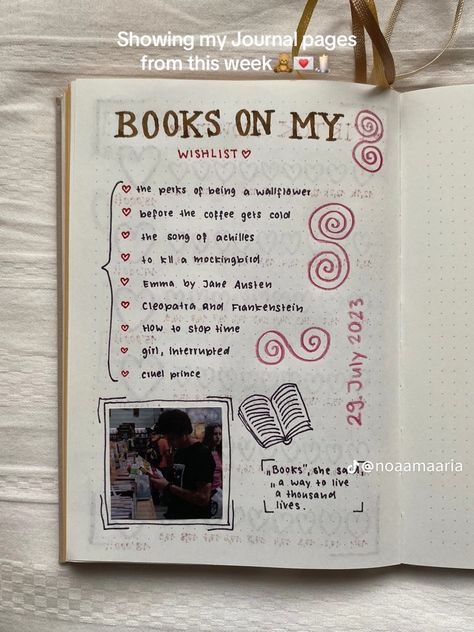 Showing my Journal pages
from this week🧸💌🕯️
BOOKS ON MY
WISHLIST♡
the perks of being a wallflower
before the coffee gets cold
the song of achilles
to kll a mockingbird
Emma by Jane Austen
Cleopatra and Frankenstein
How to stop time
girl, interrupted
cruel prince
29. July 2023
„Books", she said,
„a way to live
a thousand
lives.
@noaamaaria